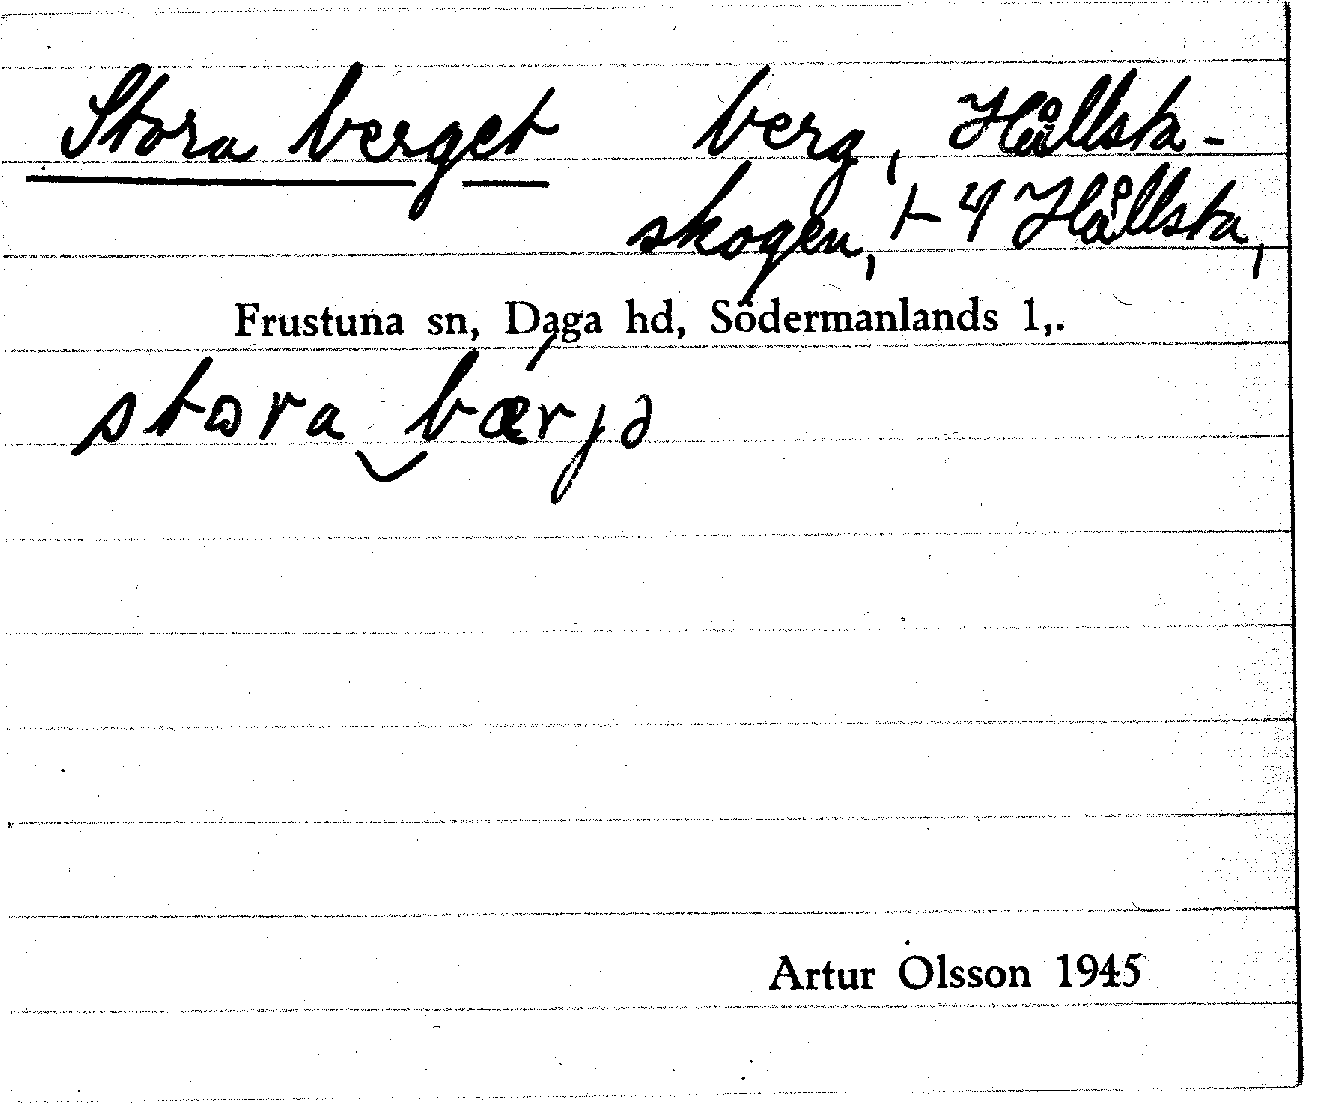 Stora berget berg, Hållsta-
skogen, t 4 Hållsta,
Frustuna sn, Daga hd, Södermanlands l,.
stora bærjə
Artur Olsson 1945